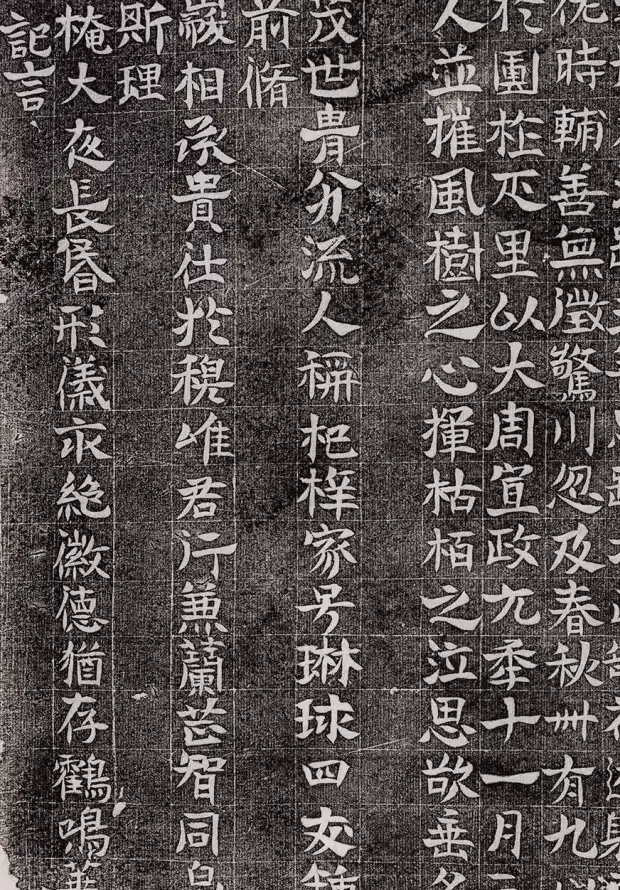 時輔善無徵驚川忽及春秋卌有九
於團里以大周宣政九季十一月
人並摧風樹之心揮枯栢之泣思欲垂名
茂世胄分流人稱杞梓家号琳球四友種
前脩
巖相承貴社於穆唯君行兼蘭芷智同
斯理
掩大夜長昏形儀永絶徽德猶存鸛鳴華
記言